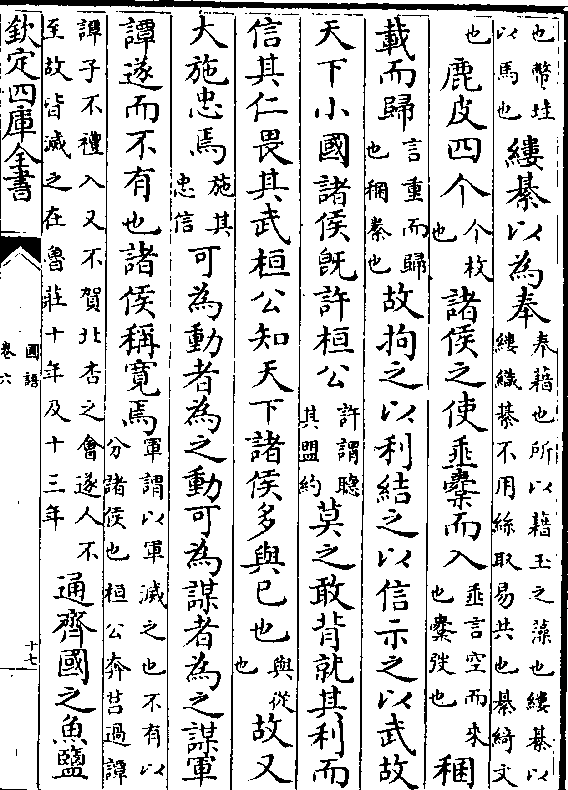 也幣珪
以馬也
縷綦以為奉
奉藉也所以藉玉之藻也縷綦以
縷織綦不用絲取易共也綦綺文
也
鹿皮四个
个枚
也
諸侯之使垂櫜而入
垂言空而來
也櫜弢也
稛
載而歸
言重而歸
也稛絭也
故拘之以利結之以信示之以武故
天下小國諸侯旣許桓公
許謂聽
其盟約
莫之敢背就其利而
信其仁畏其武桓公知天下諸侯多與已也
與從
也
故又
大施忠焉
施其
忠信
可為動者為之動可為謀者為之謀軍
譚遂而不有也諸侯稱寛焉
軍謂以軍滅之也不有以
分諸侯也桓公奔莒過譚
譚子不禮入又不賀北杏之會遂人不
至故皆滅之在魯莊十年及十三年
通齊國之魚鹽
欽定四庫全書
國語
卷六
十七